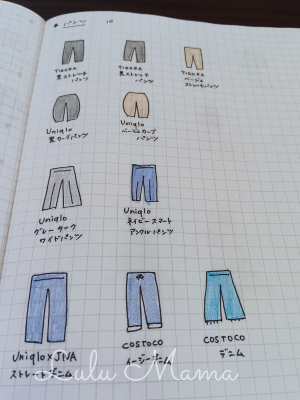 * パンツ 10
TIGORA
黒ストレッチ
パンツ
TIGORA
黒ストレッチ
パンツ
TIGORA
ベージュ
ストレートパンツ
Uniqlo
黒カーブパンツ
Uniqlo
ベージュカーブ
パンツ
Uniqlo
グレータック
ワイドパンツ
Uniqlo
ネイビースマート
アンクルパンツ
Uniqlo×JWA
ストレートデニム
COSTOCO
イージーデニム
COSTOCO
デニム
Lulu Mama